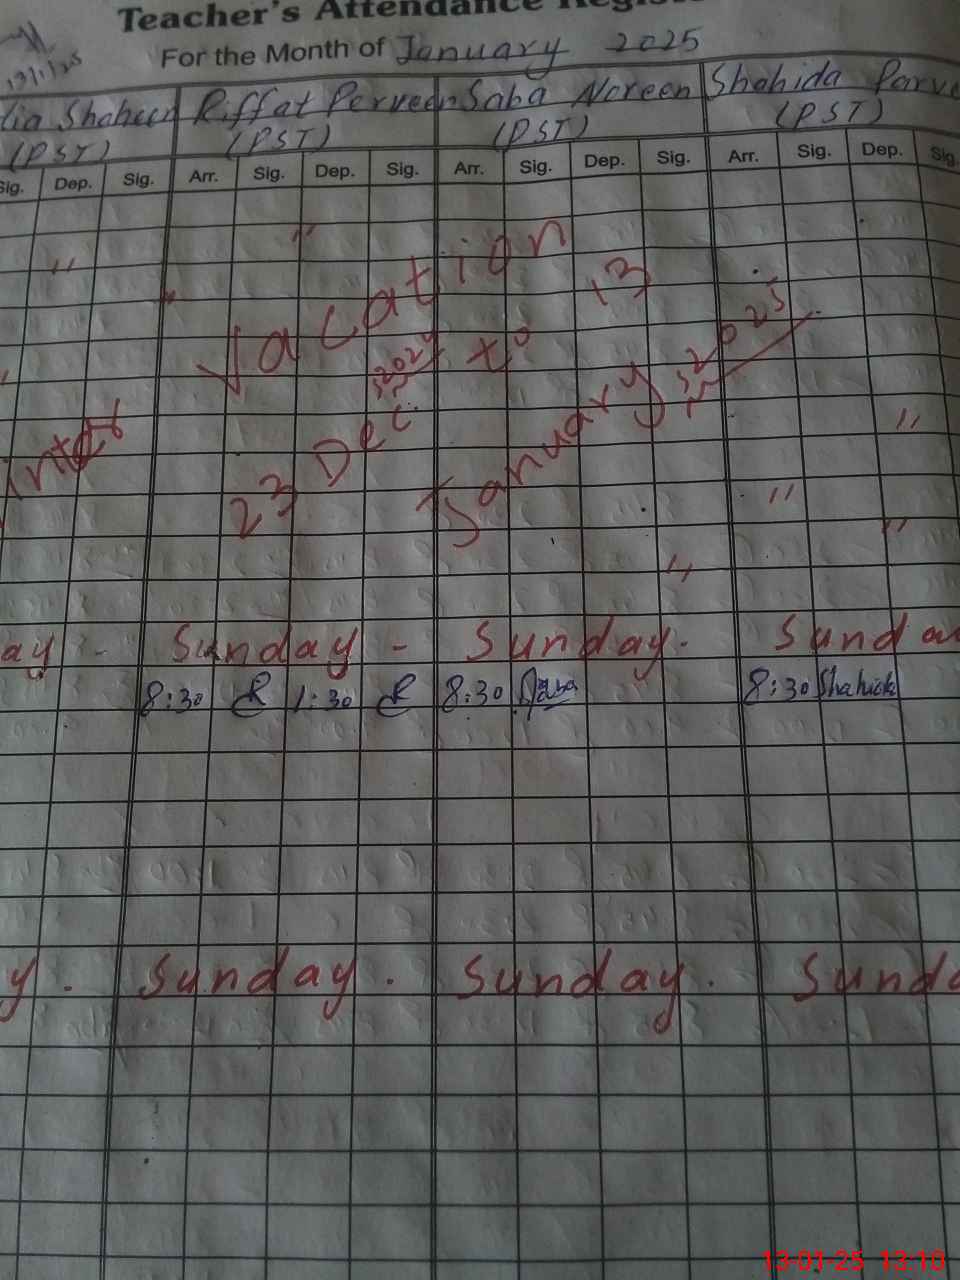 Teacher's Attendance Regis
For the Month of January 2025
13/1/25
lia Shaheen Riffat Perveen Saba Noreen Shahida Parve
(PST) (PST) (PST) (PST)
Sig. Dep. Sig. Arr. Sig. Dep. Sig. Arr. Sig. Dep. Sig. Arr. Sig. Dep. Sig.
inter Vacation
23 Dec, 2024 to 13 January, 2025
ay - Sunday - Sunday. Sunda
8:30 1:30 8:30 Saba 8:30 Shahida
y. Sunday. Sunday. Sunda
13-01-25 13:10